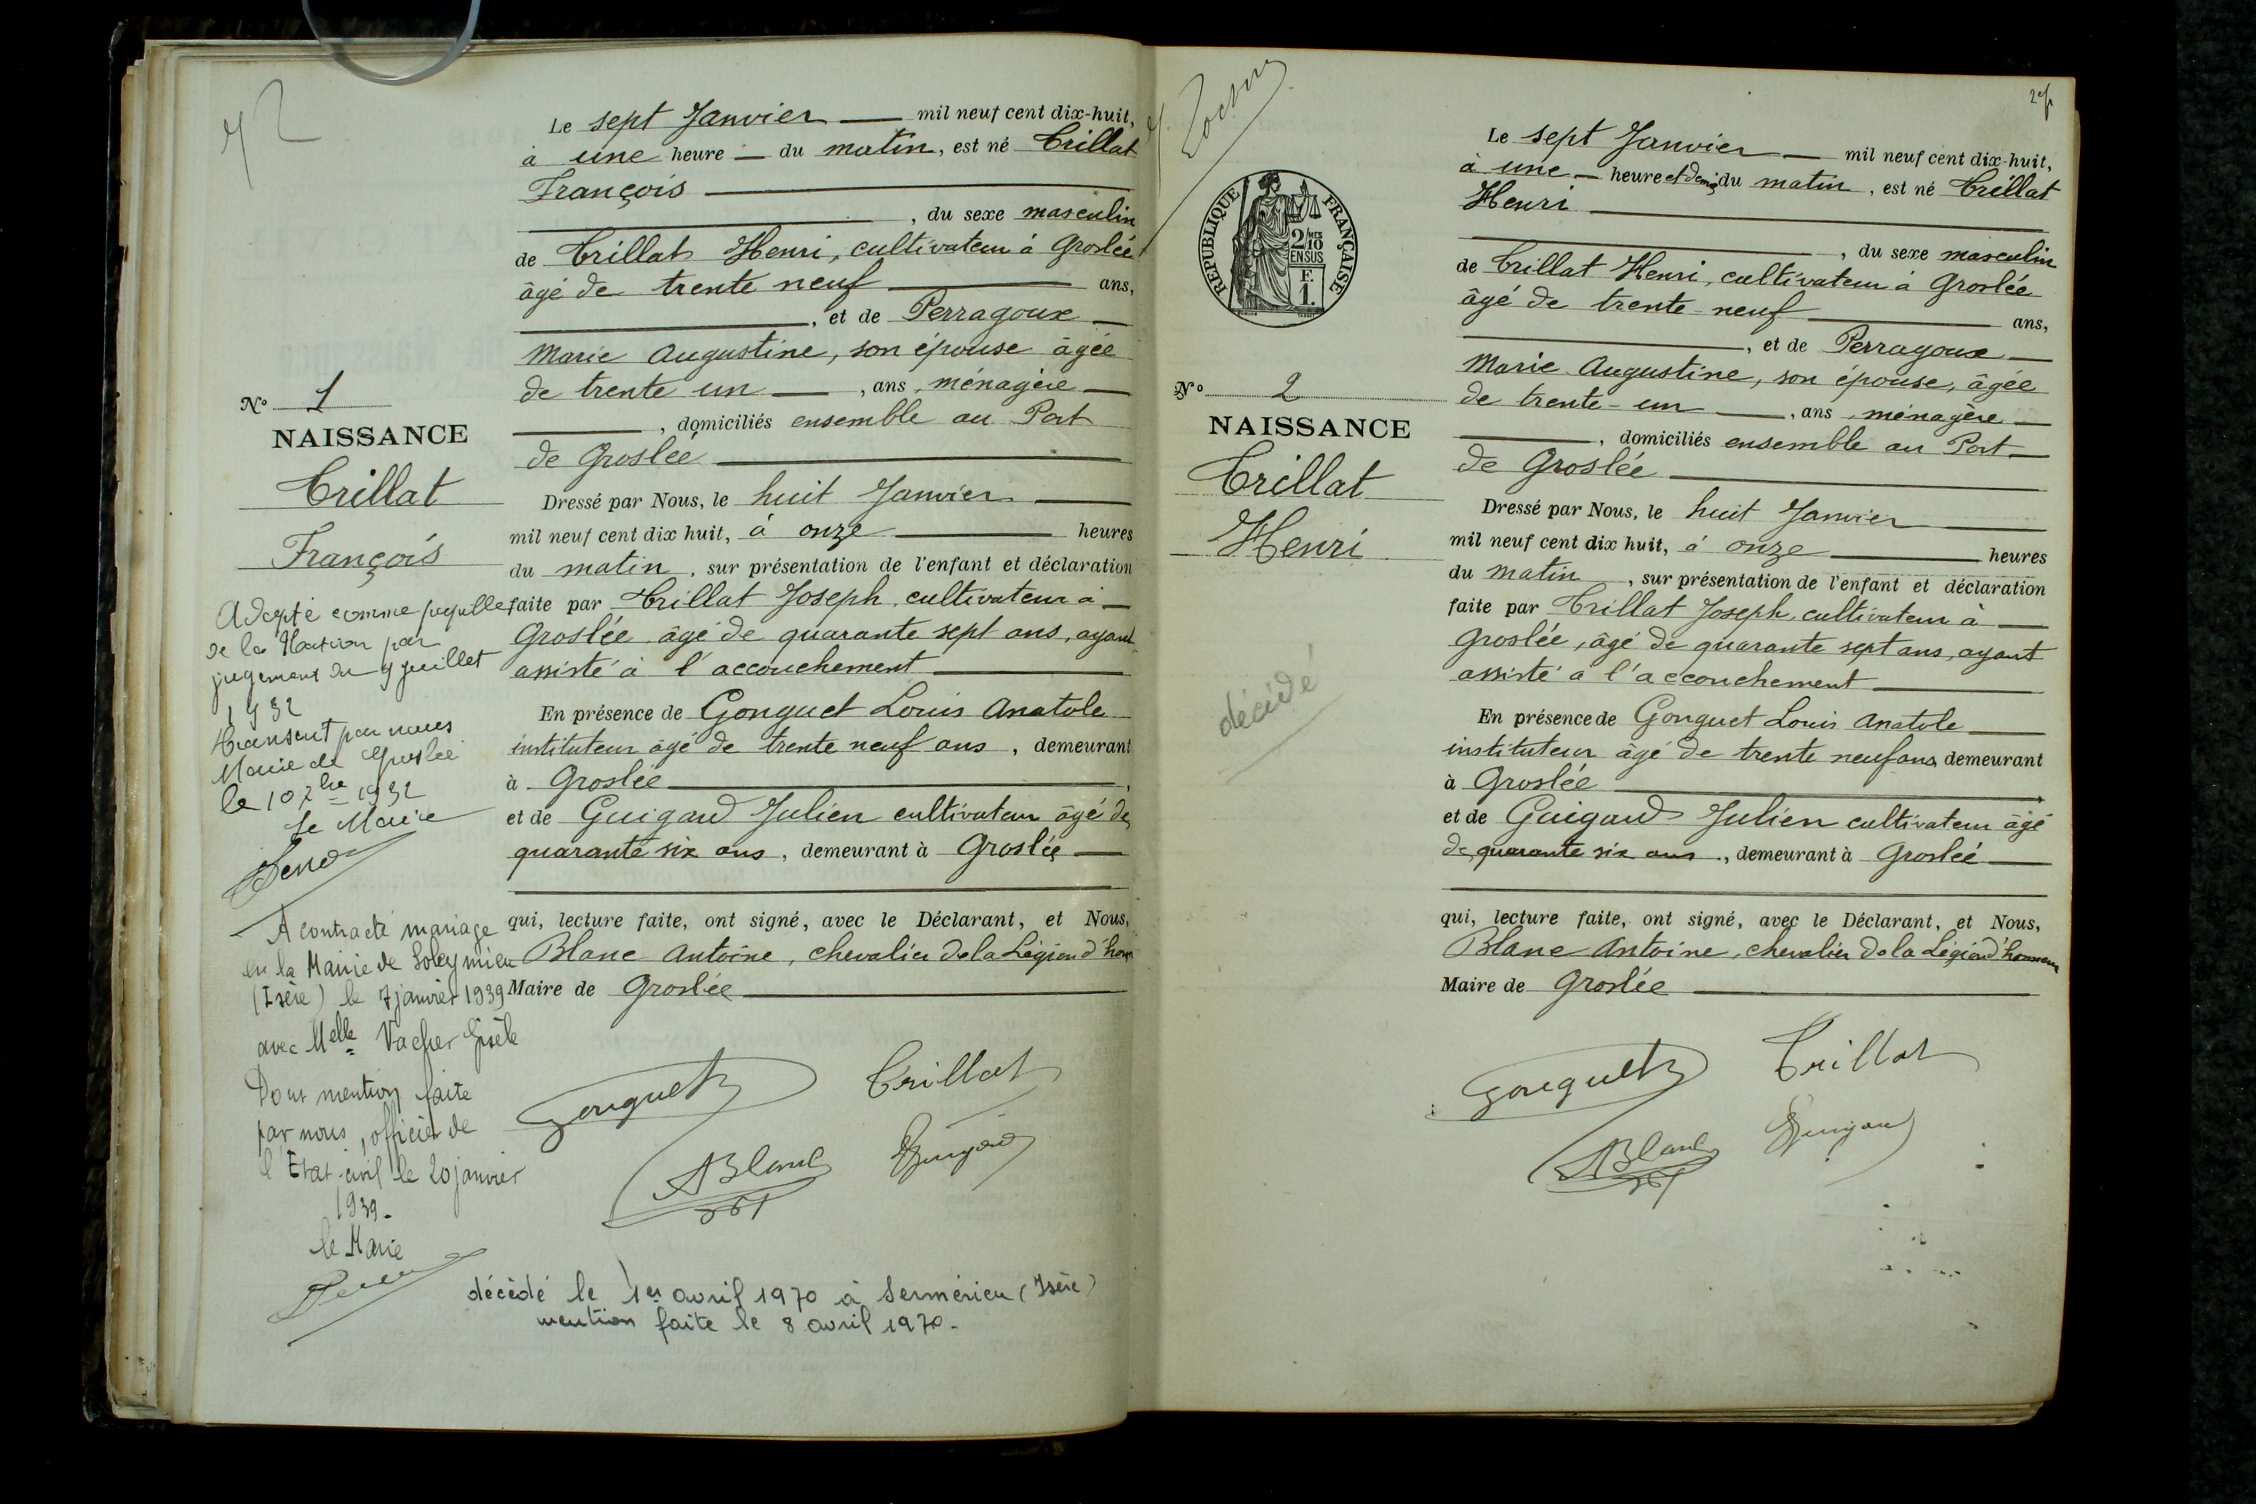 Le sept Janvier mil neuf cent dix-huit,
à une heure du matin, est né Trillat
François
, du sexe masculin
de Trillat Henri, cultivateur à Groslée
âgé de trente neuf ans,
, et de Perragoux
Marie Augustine, son épouse âgée
de trente un , ans ménagère
, domiciliés ensemble au Port
de Groslée
Dressé par Nous, le huit Janvier
mil neuf cent dix huit, à onze heures
du matin, sur présentation de l'enfant et déclaration
faite par Trillat Joseph, cultivateur à
Groslée âgé de quarante sept ans, ayant
assisté à l'accouchement
En présence de Gonguet Louis Anatole
instituteur âgé de trente neuf ans, demeurant
à Groslée,
et de Guigard Julien cultivateur âgé de
quarante six ans, demeurant à Groslée
qui, lecture faite, ont signé, avec le Déclarant, et Nous,
Blanc Antoine, chevalier de la Légion d'honr
Maire de Groslée
Gonguet Trillat
ABlanc Guigard
décédé le 1er avril 1970 à Sermérieu (Isère)
mention faite le 8 avril 1970.
No 1
NAISSANCE
Trillat
François
Adopté comme pupille
de la Nation par
jugement du 9 juillet
1932
Transcrit par nous
Maire de Groslée
le 10 7bre 1932
Le Maire
A contracté mariage
en la Mairie de Soleymieu
(Isère) le 7 janvier 1939
avec Melle Vacher Gisèle
Dont mention faite
par nous, officier de
l'Etat-civil le 20 janvier
1939.
le Maire
2
RÉPUBLIQUE FRANÇAISE
2/10MES
EN SUS
F.
1.
No 2
NAISSANCE
Trillat
Henri
décédé
Le sept Janvier mil neuf cent dix-huit,
à une heure et demie du matin, est né Trillat
Henri
, du sexe masculin
de Trillat Henri, cultivateur à Groslée
âgé de trente-neuf ans,
, et de Perragoux
Marie Augustine, son épouse, âgée
de trente-un , ans ménagère
, domiciliés ensemble au Port
de Groslée
Dressé par Nous, le huit Janvier
mil neuf cent dix huit, à onze heures
du matin, sur présentation de l'enfant et déclaration
faite par Trillat Joseph, cultivateur à
Groslée, âgé de quarante sept ans, ayant
assisté à l'accouchement
En présence de Gonguet Louis Anatole
instituteur âgé de trente neuf ans demeurant
à Groslée,
et de Guigard Julien cultivateur âgé
de quarante six ans, demeurant à Groslée
qui, lecture faite, ont signé, avec le Déclarant, et Nous,
Blanc Antoine, chevalier de la Légion d'honneur
Maire de Groslée
Gonguet Trillat
ABlanc Guigard